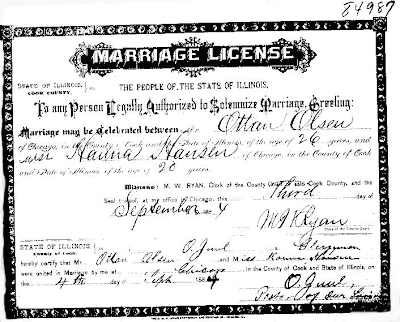 84987
MARRIAGE LICENSE
STATE OF ILLINOIS, ss. THE PEOPLE OF THE STATE OF ILLINOIS.
COOK COUNTY.
To any Person Legally Authorized to Solemnize Marriage, Greeting:
Marriage may be Celebrated between Mr Ottan Olsen
of Chicago, in the County of Cook and State of Illinois, of the age of 26 years, and
Miss Hanna Hansen of Chicago, in the County of Cook
and State of Illinois, of the age of 20 years.
Witness: M. W. RYAN, Clerk of the County Court of Cook County, and the
Seal thereof, at my office in Chicago, this Third day of
September 4
M W Ryan
Clerk of the County Court
STATE OF ILLINOIS, ss.
County of Cook. I, O. Juul a Clergyman
hereby certify that Mr. Ottan Olsen and Miss Hanna Hansen
were united in Marriage by me at Chicago in the County of Cook and State of Illinois, on
the 4th day of Sept. 188
O. Juul,
Pastor of Our